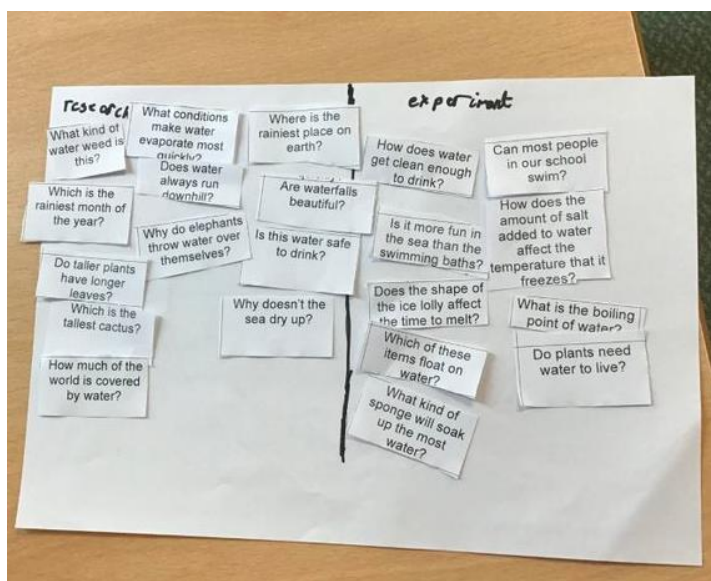 research
What kind of
water weed is
this?
What conditions
make water
evaporate most
quickly?
Where is the
rainiest place on
earth?
Does water
always run
downhill?
Which is the
rainiest month of
the year?
Are waterfalls
beautiful?
Why do elephants
throw water over
themselves?
Is this water safe
to drink?
Do taller plants
have longer
leaves?
Which is the
tallest cactus?
Why doesn't the
sea dry up?
How much of the
world is covered
by water?
experiment
How does water
get clean enough
to drink?
Can most people
in our school
swim?
Is it more fun in
the sea than the
swimming baths?
How does the
amount of salt
added to water
affect the
temperature that it
freezes?
Does the shape of
the ice lolly affect
the time to melt?
What is the boiling
point of water?
Which of these
items float on
water?
Do plants need
water to live?
What kind of
sponge will soak
up the most
water?